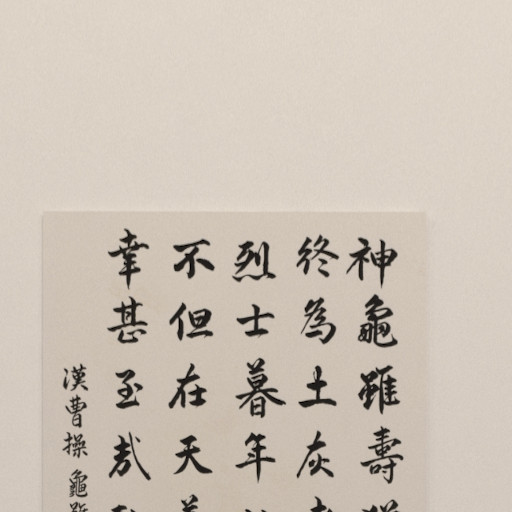 神龜雖壽
終為土灰
烈士暮年
不但在天
幸甚至哉
漢曹操龜